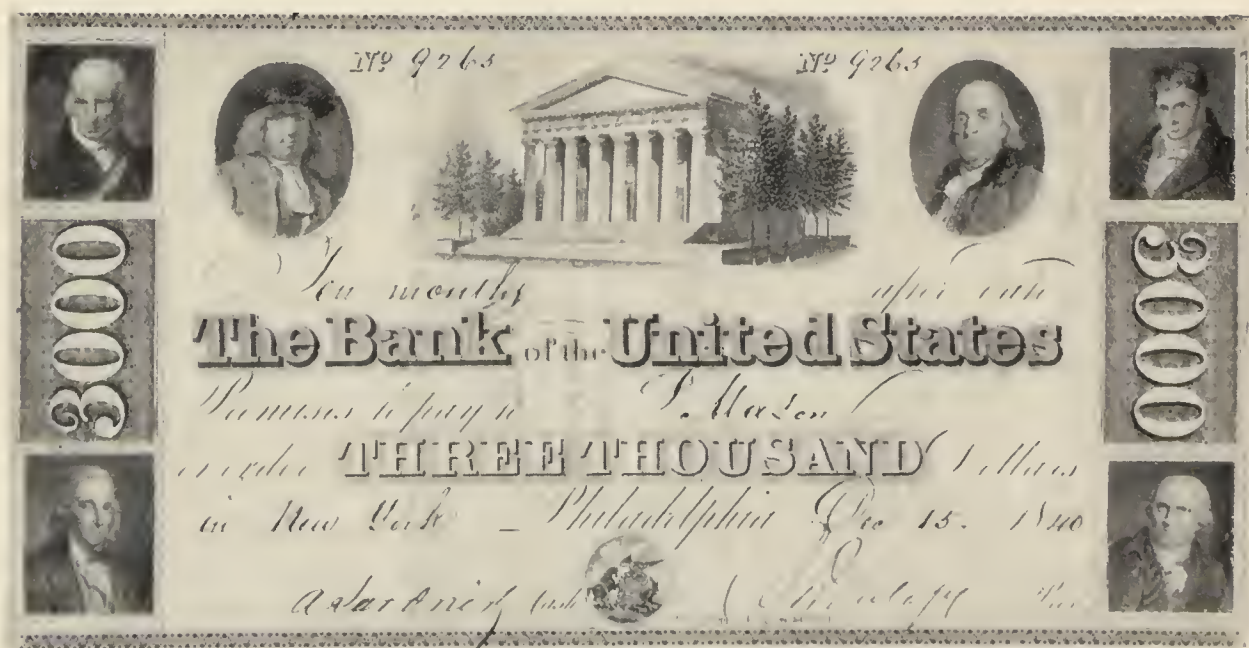 Nº 9263 Nº 9263
3000
3000
Ten months after date
The Bank of the United States
Promises to pay to
or order THREE THOUSAND Dollars
in New York – Philadelphia Dec 15. 1840
Cash